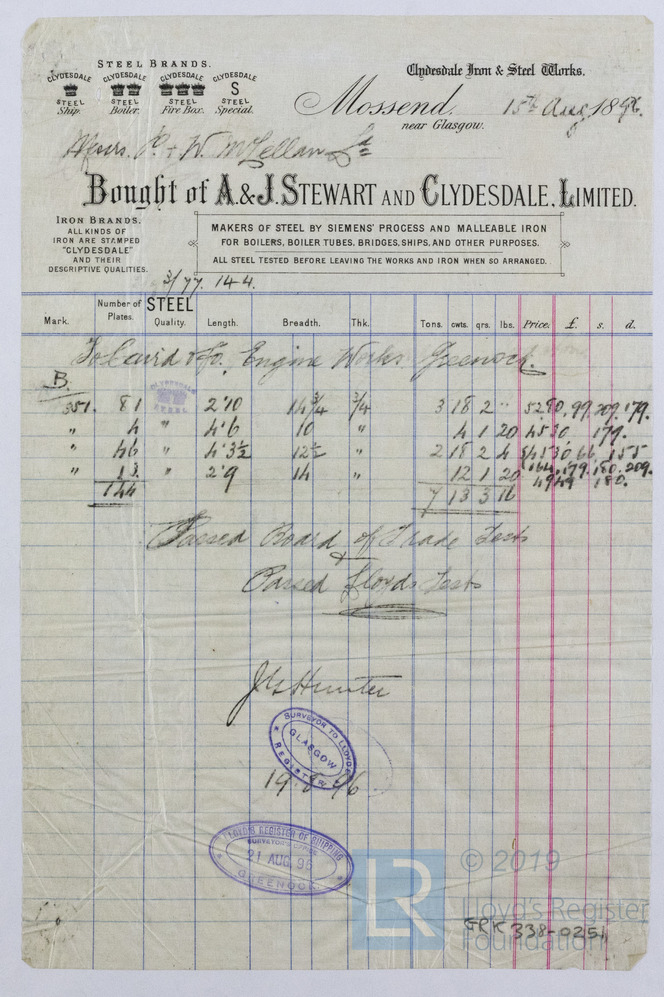 STEEL BRANDS.
CLYDESDALE STEEL Ship.
CLYDESDALE STEEL Boiler.
CLYDESDALE STEEL Fire Box.
CLYDESDALE S STEEL Special.
Clydesdale Iron & Steel Works.
Mossend,
near Glasgow.
15th Aug 1896.
Messrs. P. & W. McLellan Ld
Bought of A. & J. STEWART AND CLYDESDALE, LIMITED.
IRON BRANDS.
ALL KINDS OF
IRON ARE STAMPED
"CLYDESDALE"
AND THEIR
DESCRIPTIVE QUALITIES.
MAKERS OF STEEL BY SIEMENS' PROCESS AND MALLEABLE IRON
FOR BOILERS, BOILER TUBES, BRIDGES, SHIPS, AND OTHER PURPOSES.
ALL STEEL TESTED BEFORE LEAVING THE WORKS AND IRON WHEN SO ARRANGED.
3/77. 144.
Mark. Number of Plates. STEEL Quality. Length. Breadth. Thk. Tons. cwts. qrs. lbs. Price. £. s. d.
To Caird & Co, Engine Works Greenock.
B.
351. 81 CLYDESDALE STEEL 2'10 14 3/4 3/4 3 18 2 " 5290, 99, 209, 179.
" 4 " 4'6 10 " 4 1 20 4530, 179.
" 46 " 4'3½ 12½ " 2 18 2 4 4530 66, 155
" 13 " 2'9 14 " 12 1 20 164, 179, 180, 209.
144 7 13 3 16 4949 180.
Passed Board of Trade Tests
&
Passed Lloyds Tests
J G Hunter
SURVEYOR TO LLOYDS REGISTER
GLASGOW
19.8.96
LLOYD'S REGISTER OF SHIPPING
SURVEYOR'S OFFICE
21 AUG 96
GREENOCK
LR
© 2019
Lloyd's Register
Foundation
GRK 338-0251